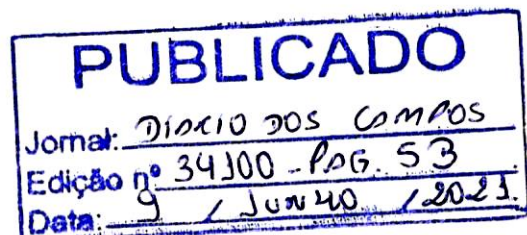 PUBLICADO
Jornal: DIÁRIO DOS CAMPOS
Edição nº 34100 - PAG.
Data: 9 / JUNHO / 2021.